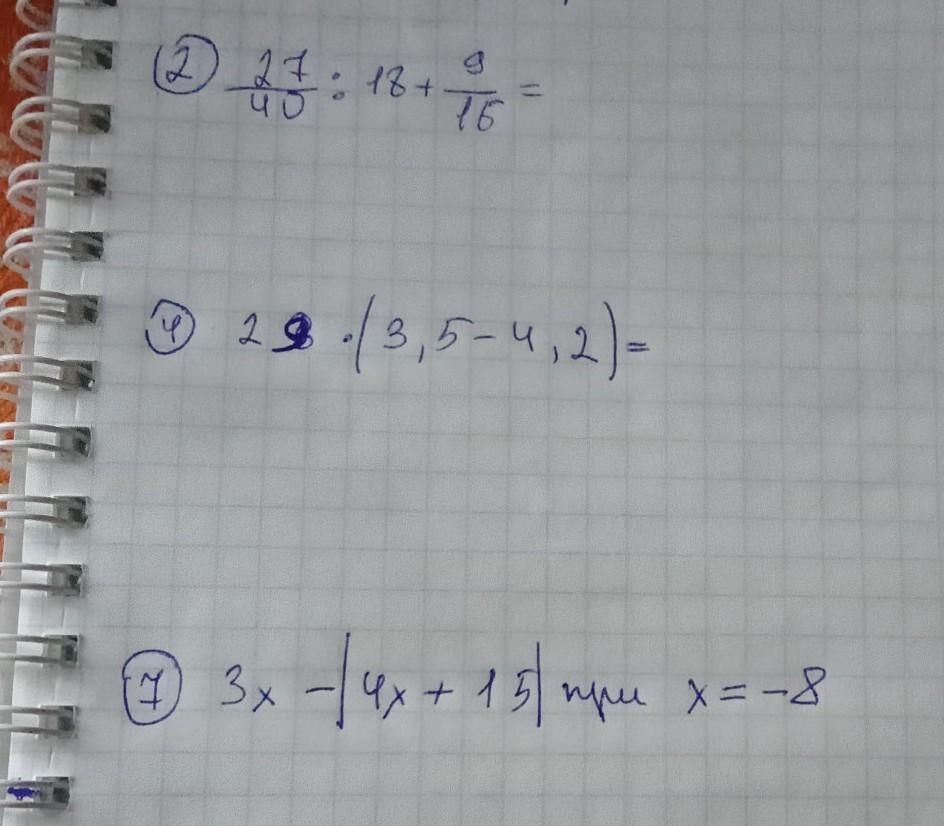 ② 27/40 : 18 + 9/16 =
④ 2 · (3,5 - 4,2) =
⑦ 3x - |4x + 15| при x = -8